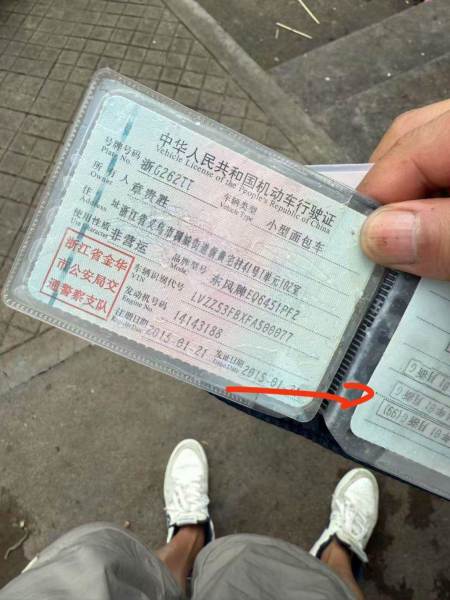 中华人民共和国机动车行驶证
Vehicle License of the People's Republic of China
号牌号码 浙G262TT 车辆类型 小型面包车
Plate No. Vehicle Type
所有人 章贵胜
Owner
住址 浙江省义乌市
Address
使用性质 非营运 品牌型号 东风牌EQ6451PF2
Use Character Model
浙江省金华
市公安局交
通警察支队
车辆识别代号 LVZZ53FBXFA500077
VIN
发动机号码 14143188
Engine No.
注册日期 2015-01-21 发证日期 2015-01-21
Register Date Issue Date